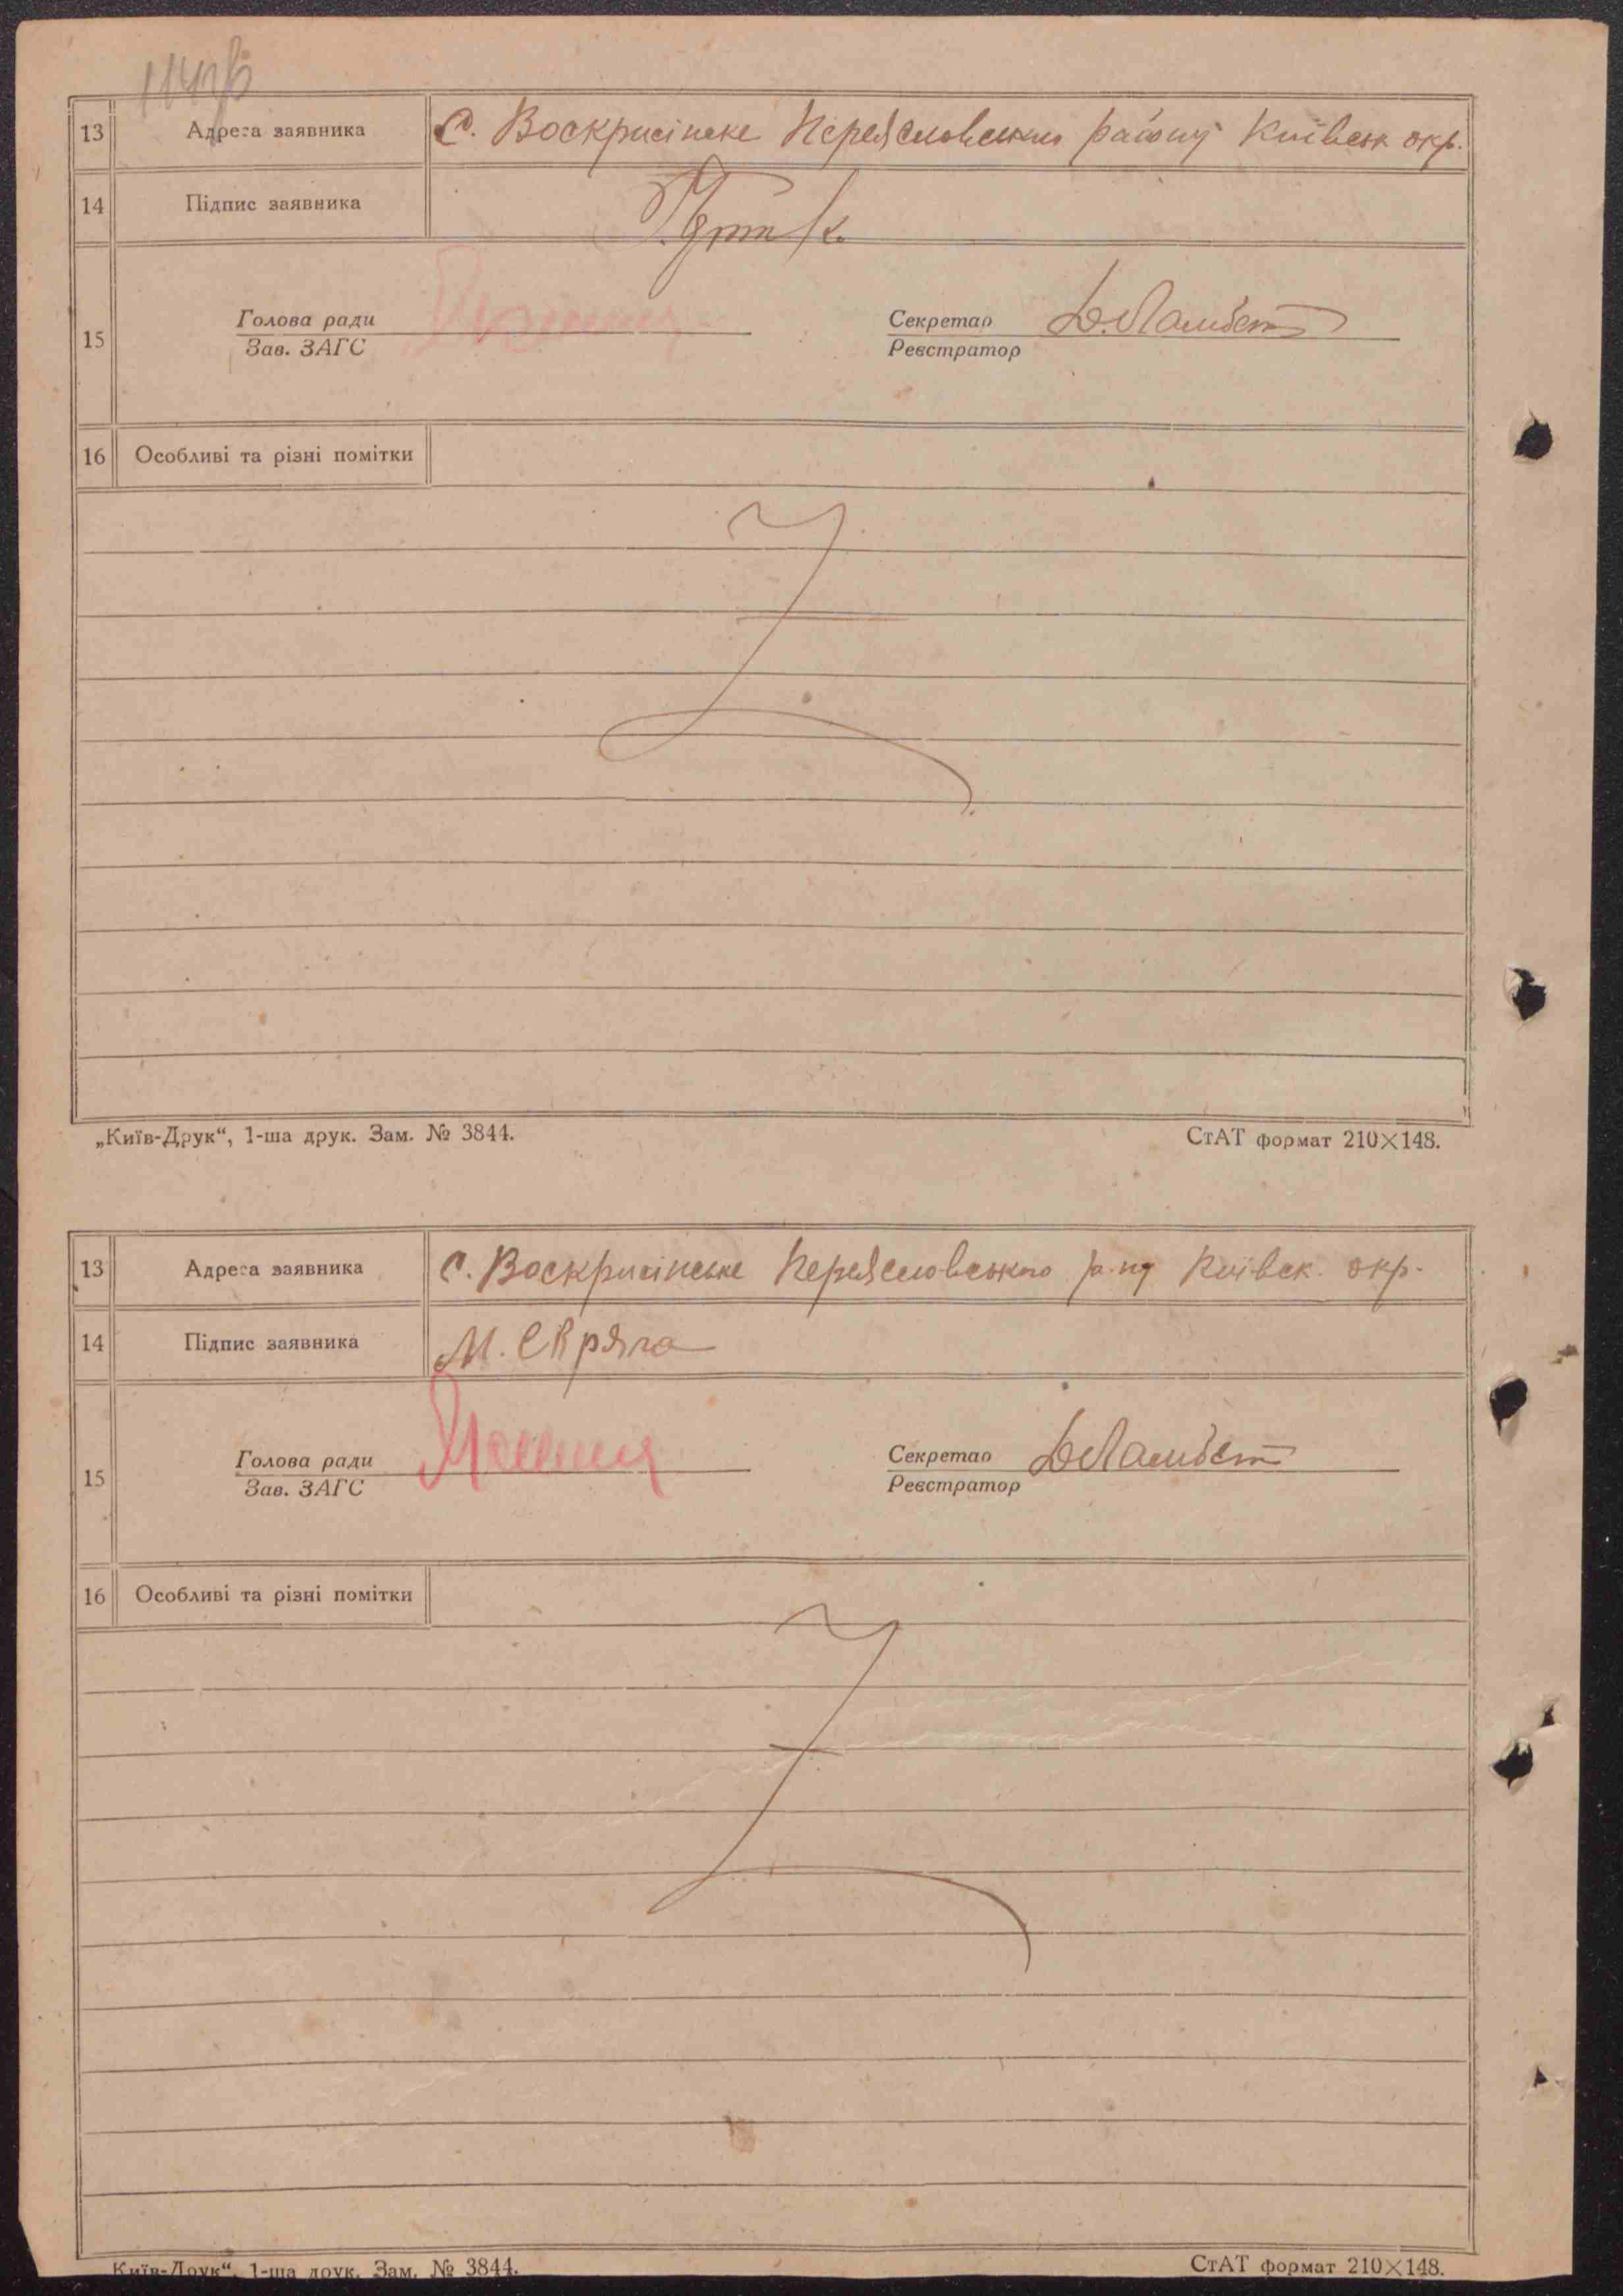 13 Адреса заявника С. Воскрисінске Переясловського району Київськ окр.
14 Підпис заявника
Голова ради Секретар Д. Ламбет
15
Зав. ЗАГС Реєстратор
16 Особливі та різні помітки
„Київ-Друк“, 1-ша друк. Зам. № 3844. СтАТ формат 210×148.
13 Адреса заявника С. Воскрисінське Переясловського р-ну Київск. окр.
14 Підпис заявника М. Скряга
Голова ради Секретар Д Ламбет
15
Зав. ЗАГС Реєстратор
16 Особливі та різні помітки
„Київ-Друк“, 1-ша друк. Зам. № 3844. СтАТ формат 210×148.